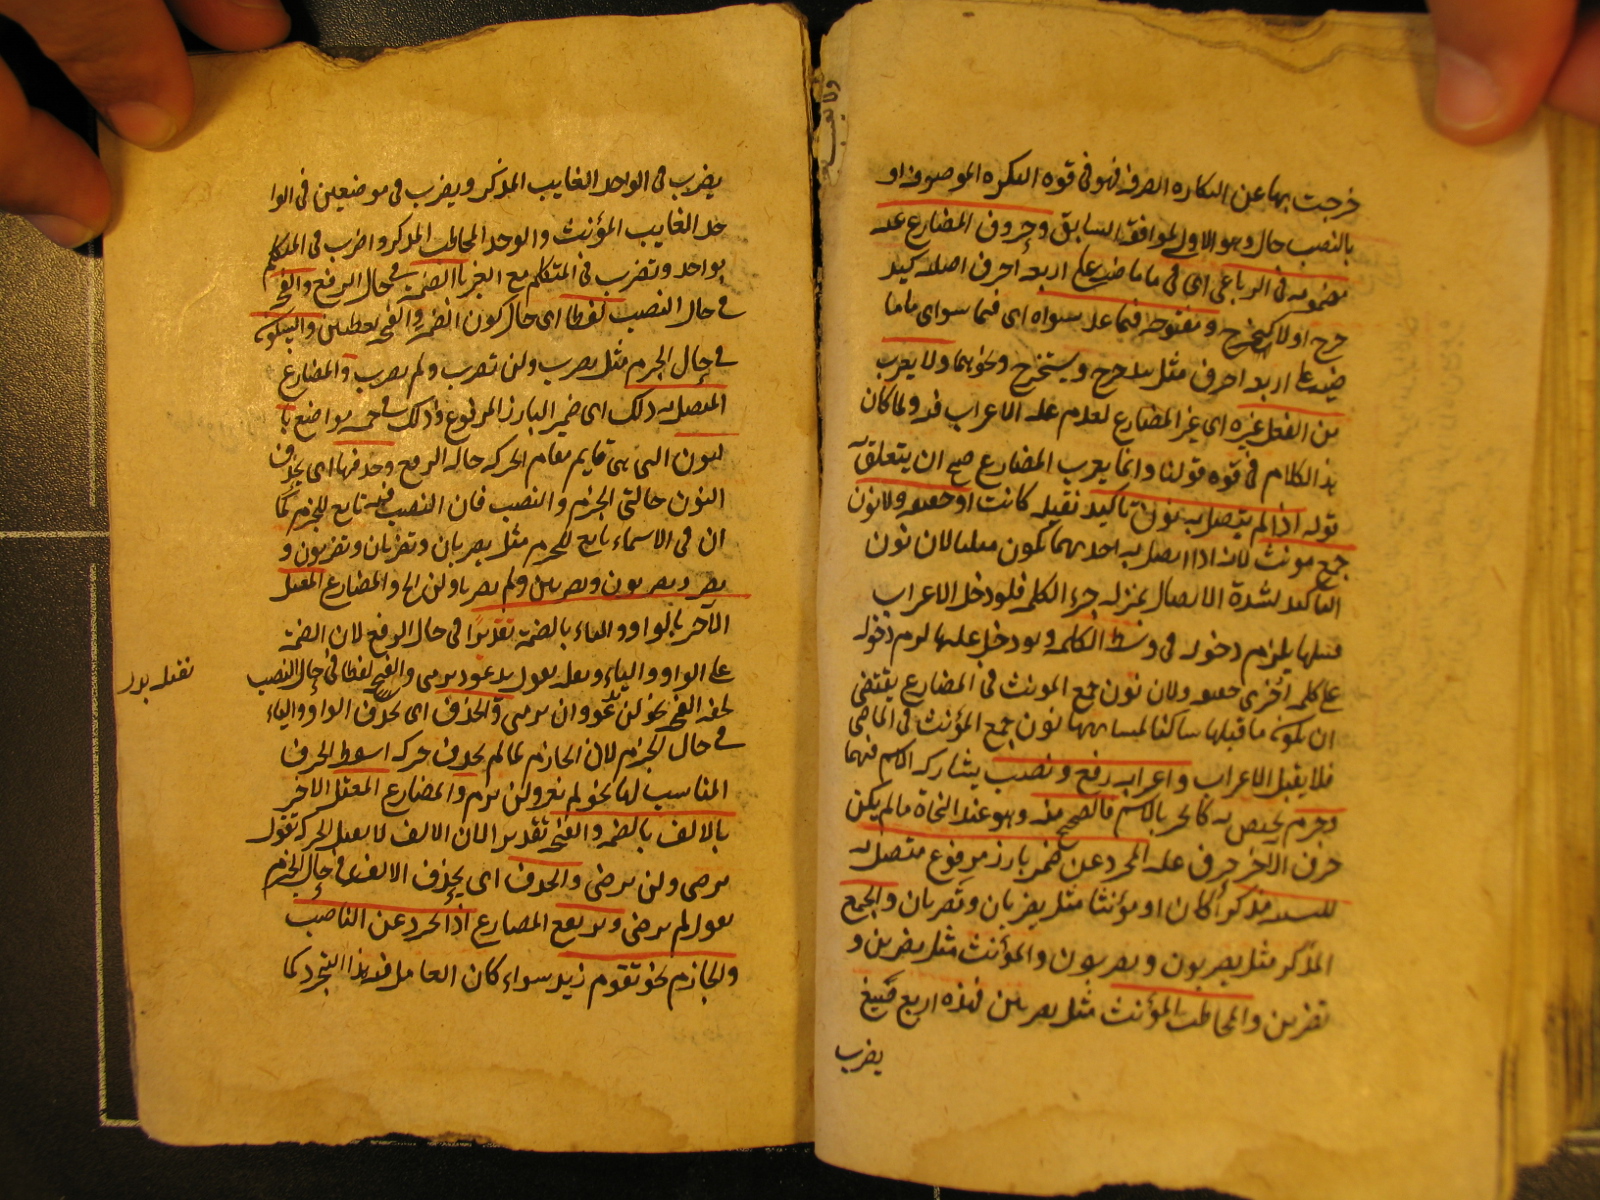 خرجت بها عن النكارة الصرفة فهو في قوة النكرة الموصوفة او
بالنصب حال وهو الاولى لموافقة السابق وحروف المضارعة
مضمومة في الرباعي اي في ما ماضيه على اربعة احرف اصلية كيد
حرج اولا كيخرج ومفتوحة فيما عد سواه اى فيما سواى ماما
ضيه على اربعة احرف مثل يدحرج ويستخرج ونحوهما ولا يعرب
من الفعل غيره اى غير المضارع لعدم علة الاعراب فيه ولما كان
هذا الكلام في قوة قولنا وانما يعرب المضارع صح ان يتعلق به
قوله اذا لم يتصل به نون تأكيد ثقيلة كانت او خفيفة ولا نون
جمع مونث لانه اذا اتصل به احدهما يكون مبنيا لان نون
التاكيد لشدة الاتصال بمنزلة جزء الكلمة فلو دخل الاعراب
قبلها يلزم دخوله في وسط الكلمة ولو دخل عليها لزم دخوله
على كلمة اخرى حقيقة ولان نون جمع المونث في المضارع يقتضى
ان يكون ما قبلها ساكنا لمشابهتها نون جمع المؤنث في الماضى
فلا يقبل الاعراب واعرابه رفع ونصب يشاركه الاسم فيهما
وجزم يختص به كالجر بالاسم فالصحيح منه وهو عند النحاة ما لم يكن
حرف الاخر حرف علة المجرد عن ضمير بارز مرفوع متصل به
للتثنية مذكرا كان او مؤنثا مثل يضربان وتضربان والجمع
المذكر مثل يضربون وتضربون والمؤنث مثل يضربن و
تضربن والمخاطب المؤنث مثل تضربين فهذه اربع صيغ
يضرب
يضرب في الواحد الغايب المذكر ويضرب في موضعين في الوا
حد الغايب المؤنث والوحد المخاطب المذكر واضرب في المتكلم
بواحد وتضرب في المتكلم مع الغير بالضمة في حال الرفع والفتح
في حال النصب لفظا اى حال كون الضمة والفتح لفظيتين والسكون
في حال الجزم مثل يضرب ولن تضرب ولم يضرب والمضارع
المتصل به ذلك اى ضمير البارز المرفوع وذلك في خمسة مواضع با
لنون التي هي قايم مقام الحركة حالة الرفع وحذفها اى بحذف
النون حالتى الجزم والنصب فان النصب فيه تابع للجزم كما
ان في الاسماء تابع للجر مثل يضربان وتضربان وتضربون و
يضربون وتضربين ولم يضربا ولن الخ والمضارع المعتل
الآخر بالواو والياء بالضمة تقديرا في حال الرفع لان الضمة
على الواو والياء ثقيلة تقول يدعو ويرمى والفتح لفظا في حال النصب
لخفة الفتح نحو لن يدعو وان يرمى والحذف اى بحذف الواو والياء
في حال الجزم لان الجازم لما لم يحذف حركة اسقط الحرف
المناسب لها نحو لم يغز ولن يرم والمضارع المعتل الاخر
بالالف بالضمة والفتح تقديرا لان الالف لا يقبل الحركة تقول
يرضى ولن يرضى والحذف اى بحذف الالف في حال الجزم
تقول لم يرضى ويرتفع المضارع اذا تجرد عن الناصب
والجازم نحو تقوم زيد سواء كان العامل فيه هذا التجرد كما